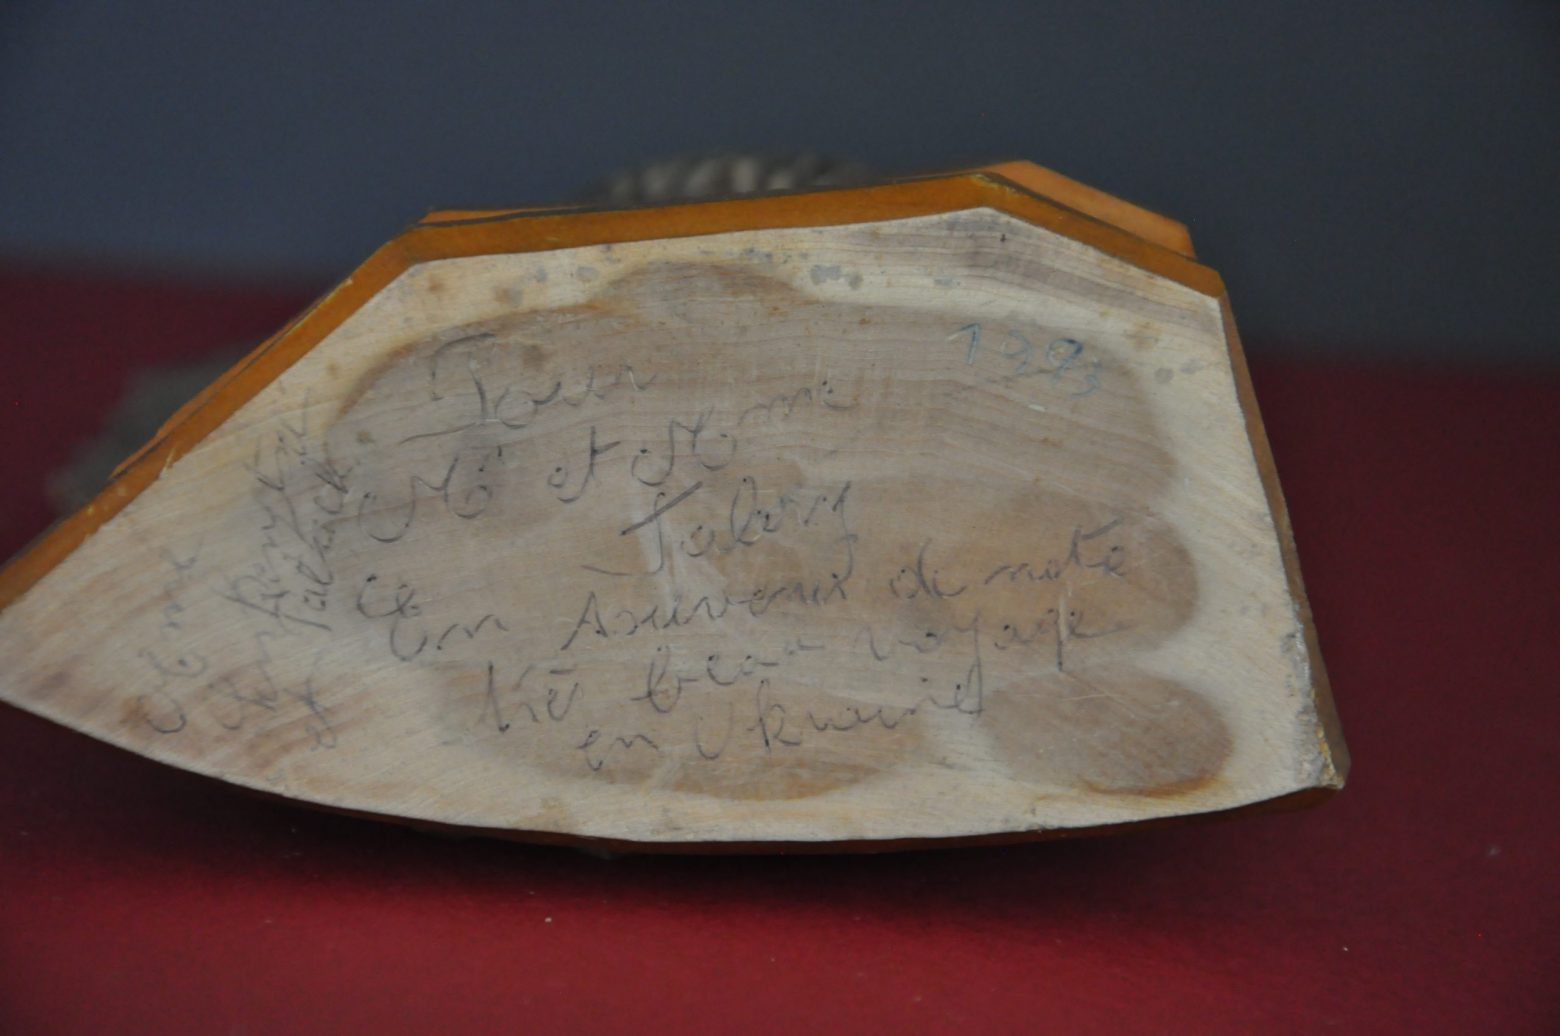 1993
Pour
Mr et Mme
Talary
En souvenir de notre
très beau voyage
en Ukraine
Mme
et